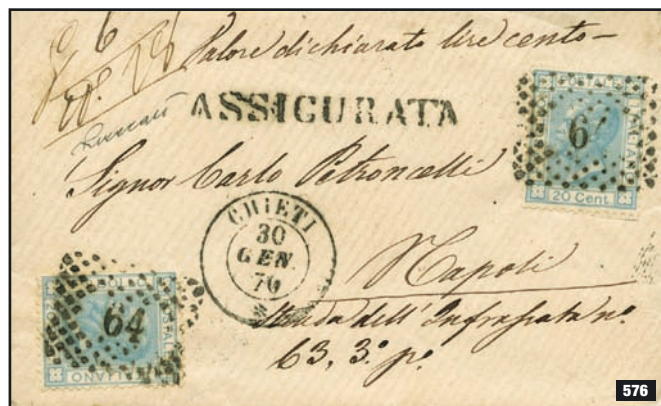 Valore dichiarato lire cento-
ASSICURATA
Signor Carlo Petroncelli
CHIETI
30
GEN.
70
Napoli
Strada dell' Infrascata no.
63, 3o. po.
64
20 Cent.
64
ITALIANO
576